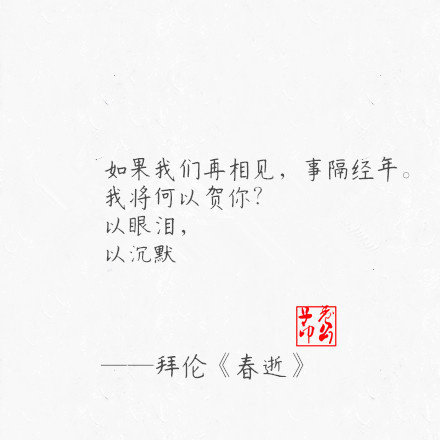 如果我们再相见，事隔经年。
我将何以贺你？
以眼泪，
以沉默
——拜伦《春逝》